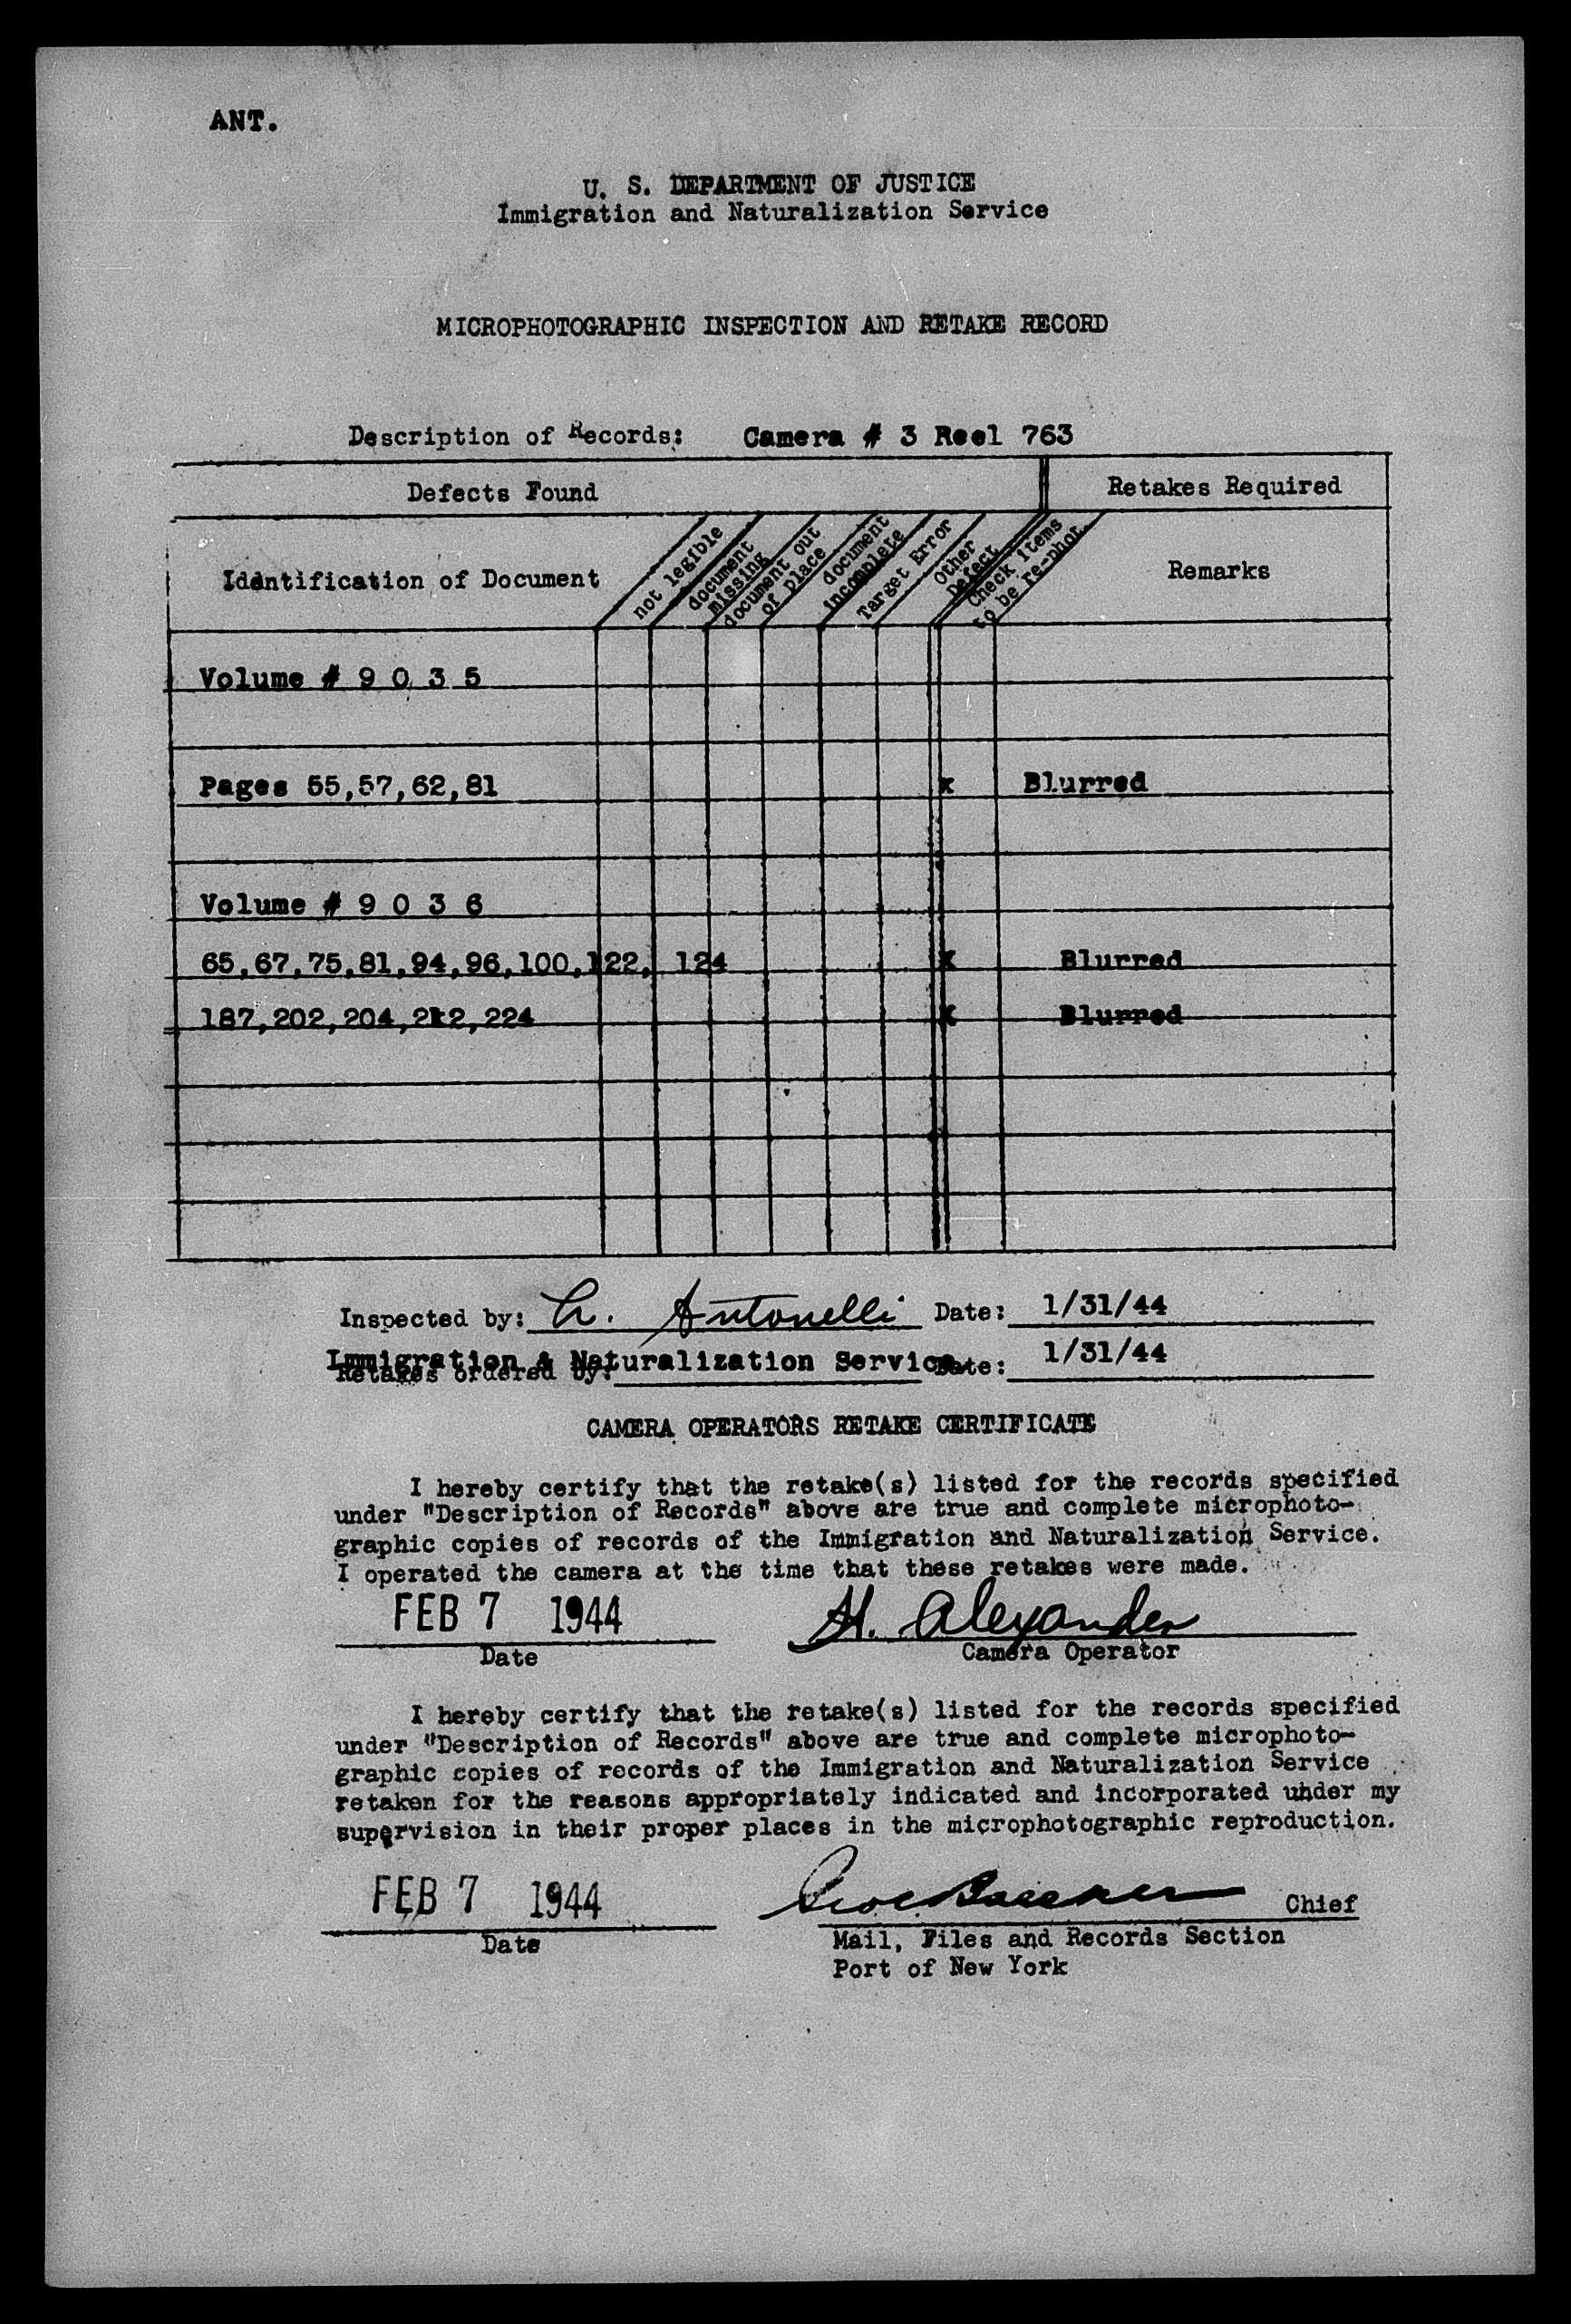 ANT.
U. S. DEPARTMENT OF JUSTICE
Immigration and Naturalization Service
MICROPHOTOGRAPHIC INSPECTION AND RETAKE RECORD
Description of Records: Camera # 3 Reel 763
Defects Found
Retakes Required
Identification of Document
not legible
document missing
document out of place
document incomplete
Target Error
Other Defect
Check items to be re-phot.
Remarks
Volume # 9 0 3 5
Pages 55,57,62,81 x Blurred
Volume # 9 0 3 6
65,67,75,81,94,96,100,122, 124 x Blurred
187,202,204,212,224 x Blurred
Inspected by: A. Antonelli Date: 1/31/44
Immigration & Naturalization Service
Retakes ordered by: Date: 1/31/44
CAMERA OPERATORS RETAKE CERTIFICATE
I hereby certify that the retake(s) listed for the records specified
under "Description of Records" above are true and complete microphoto-
graphic copies of records of the Immigration and Naturalization Service.
I operated the camera at the time that these retakes were made.
FEB 7 1944 H. Alexander
Date Camera Operator
I hereby certify that the retake(s) listed for the records specified
under "Description of Records" above are true and complete microphoto-
graphic copies of records of the Immigration and Naturalization Service
retaken for the reasons appropriately indicated and incorporated under my
supervision in their proper places in the microphotographic reproduction.
FEB 7 1944 Chief
Date Mail, Files and Records Section
Port of New York